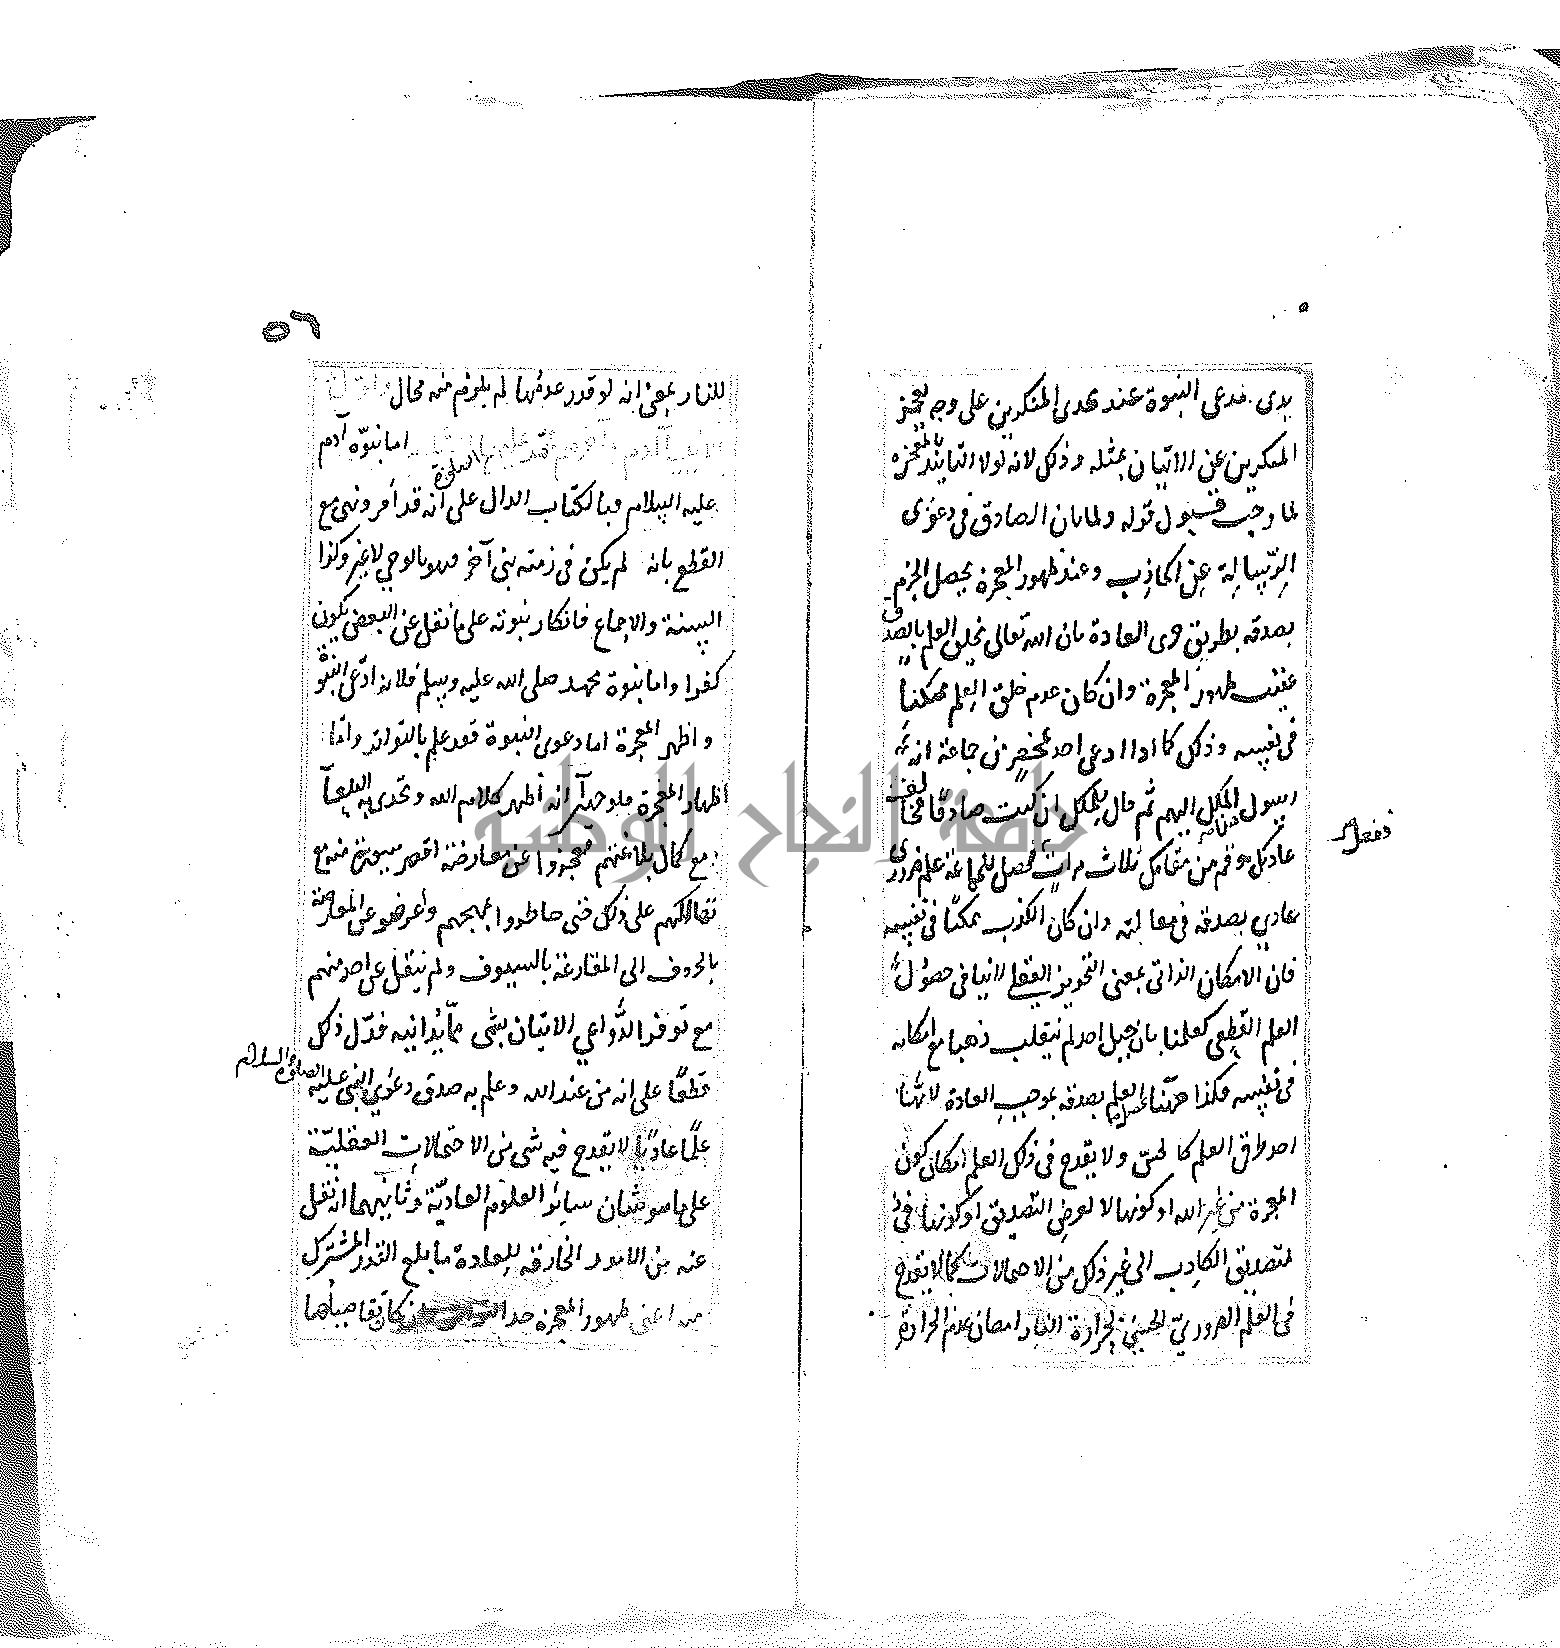 يدي مدعي النبوة عند تحدي المنكرين على وجه يعجز
المنكرين عن الاتيان بمثله وذلك لانه لولا التاييد بالمعجزة
لما وجب قبول قوله ولما بان الصادق في دعوى
الرسالة عن الكاذب وعند ظهور المعجزة يحصل الجزم
بصدقه بطريق جرى العادة بان الله تعالى يخلق العلم بالصدق
عقيب ظهور المعجزة وان كان عدم خلق العلم ممكنا
في نفسه وذلك كما اذا ادعى احد بمحضر من جماعة انه
رسول الملك اليهم ثم قال للملك ان كنت صادقا فخالف
عادتك وقم من مقامك ثلاث مرات فحصل للجماعة علم ضروري
ففعل
عادي بصدقه في مقالته وان كان الكذب ممكنا في نفسه
فان الامكان الذاتي بمعنى التجويز العقلي لا ينافي حصول
العلم القطعي كعلمنا بان جبل احد لم ينقلب ذهبا مع امكانه
في نفسه فكذا ههنا يحصل العلم بصدقه بموجب العادة لانها
احد طرق العلم كالحس ولا يقدح في ذلك العلم امكان كون
المعجزة من غير الله او كونها لا لغرض التصديق او كونها
لتصديق الكاذب الى غير ذلك من الاحتمالات كما لا يقدح
في العلم الضروري الحسي بحرارة النار امكان عدم الحرارة
٥٦
للنار بمعنى انه لو قدر عدمها لم يلزم منه محال واول
الانبياء آدم وآخرهم محمد عليهما الصلوة اما نبوة آدم
عليه السلام فبالكتاب الدال على انه قد أمر ونهى مع
القطع بانه لم يكن في زمنه نبي آخر فهو بالوحي لا غير وكذا
السنة والاجماع فانكار نبوته على ما نقل عن البعض يكون
كفرا واما نبوة محمد صلى الله عليه وسلم فلانه ادعى النبوة
واظهر المعجزة اما دعوى النبوة فقد علم بالتواتر واما
اظهار المعجزة فلوجهين احدهما انه أظهر كلام الله وتحدى به البلغاء
مع كمال بلاغتهم فعجزوا عن معارضة اقصر سورة منه مع
تهالكهم على ذلك حتى خاطروا بمهجتهم وأعرضو عن المعارضة
بالحروف الى المقارعة بالسيوف ولم ينقل عن احد منهم
مع توفر الدواعي الاتيان بشي مما يدانيه فدل ذلك
قطعا على انه من عند الله وعلم به صدق دعوي النبي عليه
الصلوة والسلام
علما عاديا لا يقدح فيه شي من الاحتمالات العقلية
على ما هو شان سائر العلوم العادية وثانيهما انه نقل
عنه من الامور الخارقة للعادة ما بلغ القدر المشترك
منه اعني ظهور المعجزة حد التواتر وان كانت تفاصيلها
جامعة النجاح الوطنية